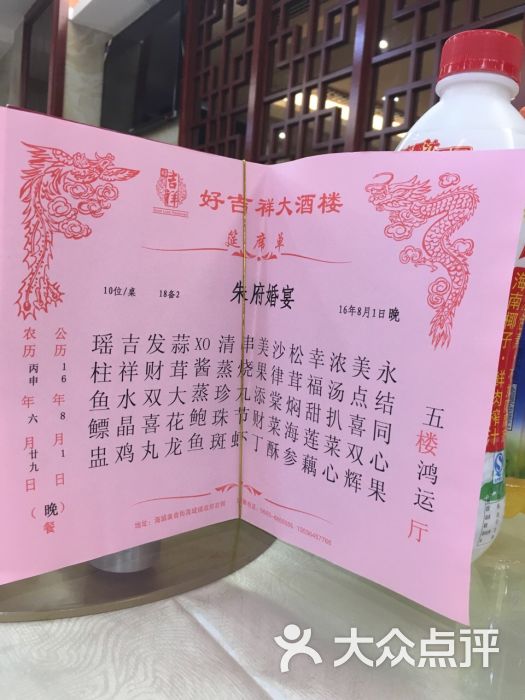 吉祥
好吉祥大酒楼
筵席单
10位/桌 18备2 朱府婚宴 16年8月1日晚
农历丙申年六月廿九日
公历16年8月1日（晚）餐
瑶柱鱼鳔盅
吉祥水晶鸡
发财双喜丸
蒜茸大花龙
XO酱蒸鲍鱼
清蒸珍珠斑
串烧九节虾
美果添财丁
沙律棠菜酥
松茸焖海参
幸福甜莲藕
浓汤扒菜心
美点喜双辉
永结同心果
五楼鸿运厅
地址：
海南椰子·鲜肉榨汁
大众点评